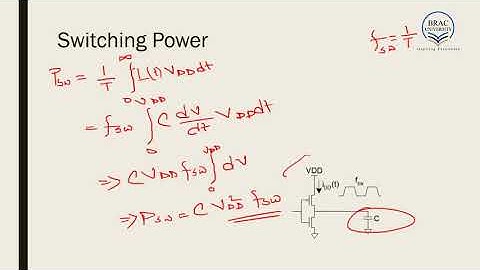 Switching Power
f_sw = 1/T
BRAC
UNIVERSITY
P_sw = 1/T ∫_0^∞ i(t) V_DD dt
= f_sw ∫_0^VDD C dv/dt V_DD dt
=> C V_DD f_sw ∫_0^VDD dv
=> P_sw = C V_DD^2 f_sw
VDD
i_DD(t)
f_sw
C